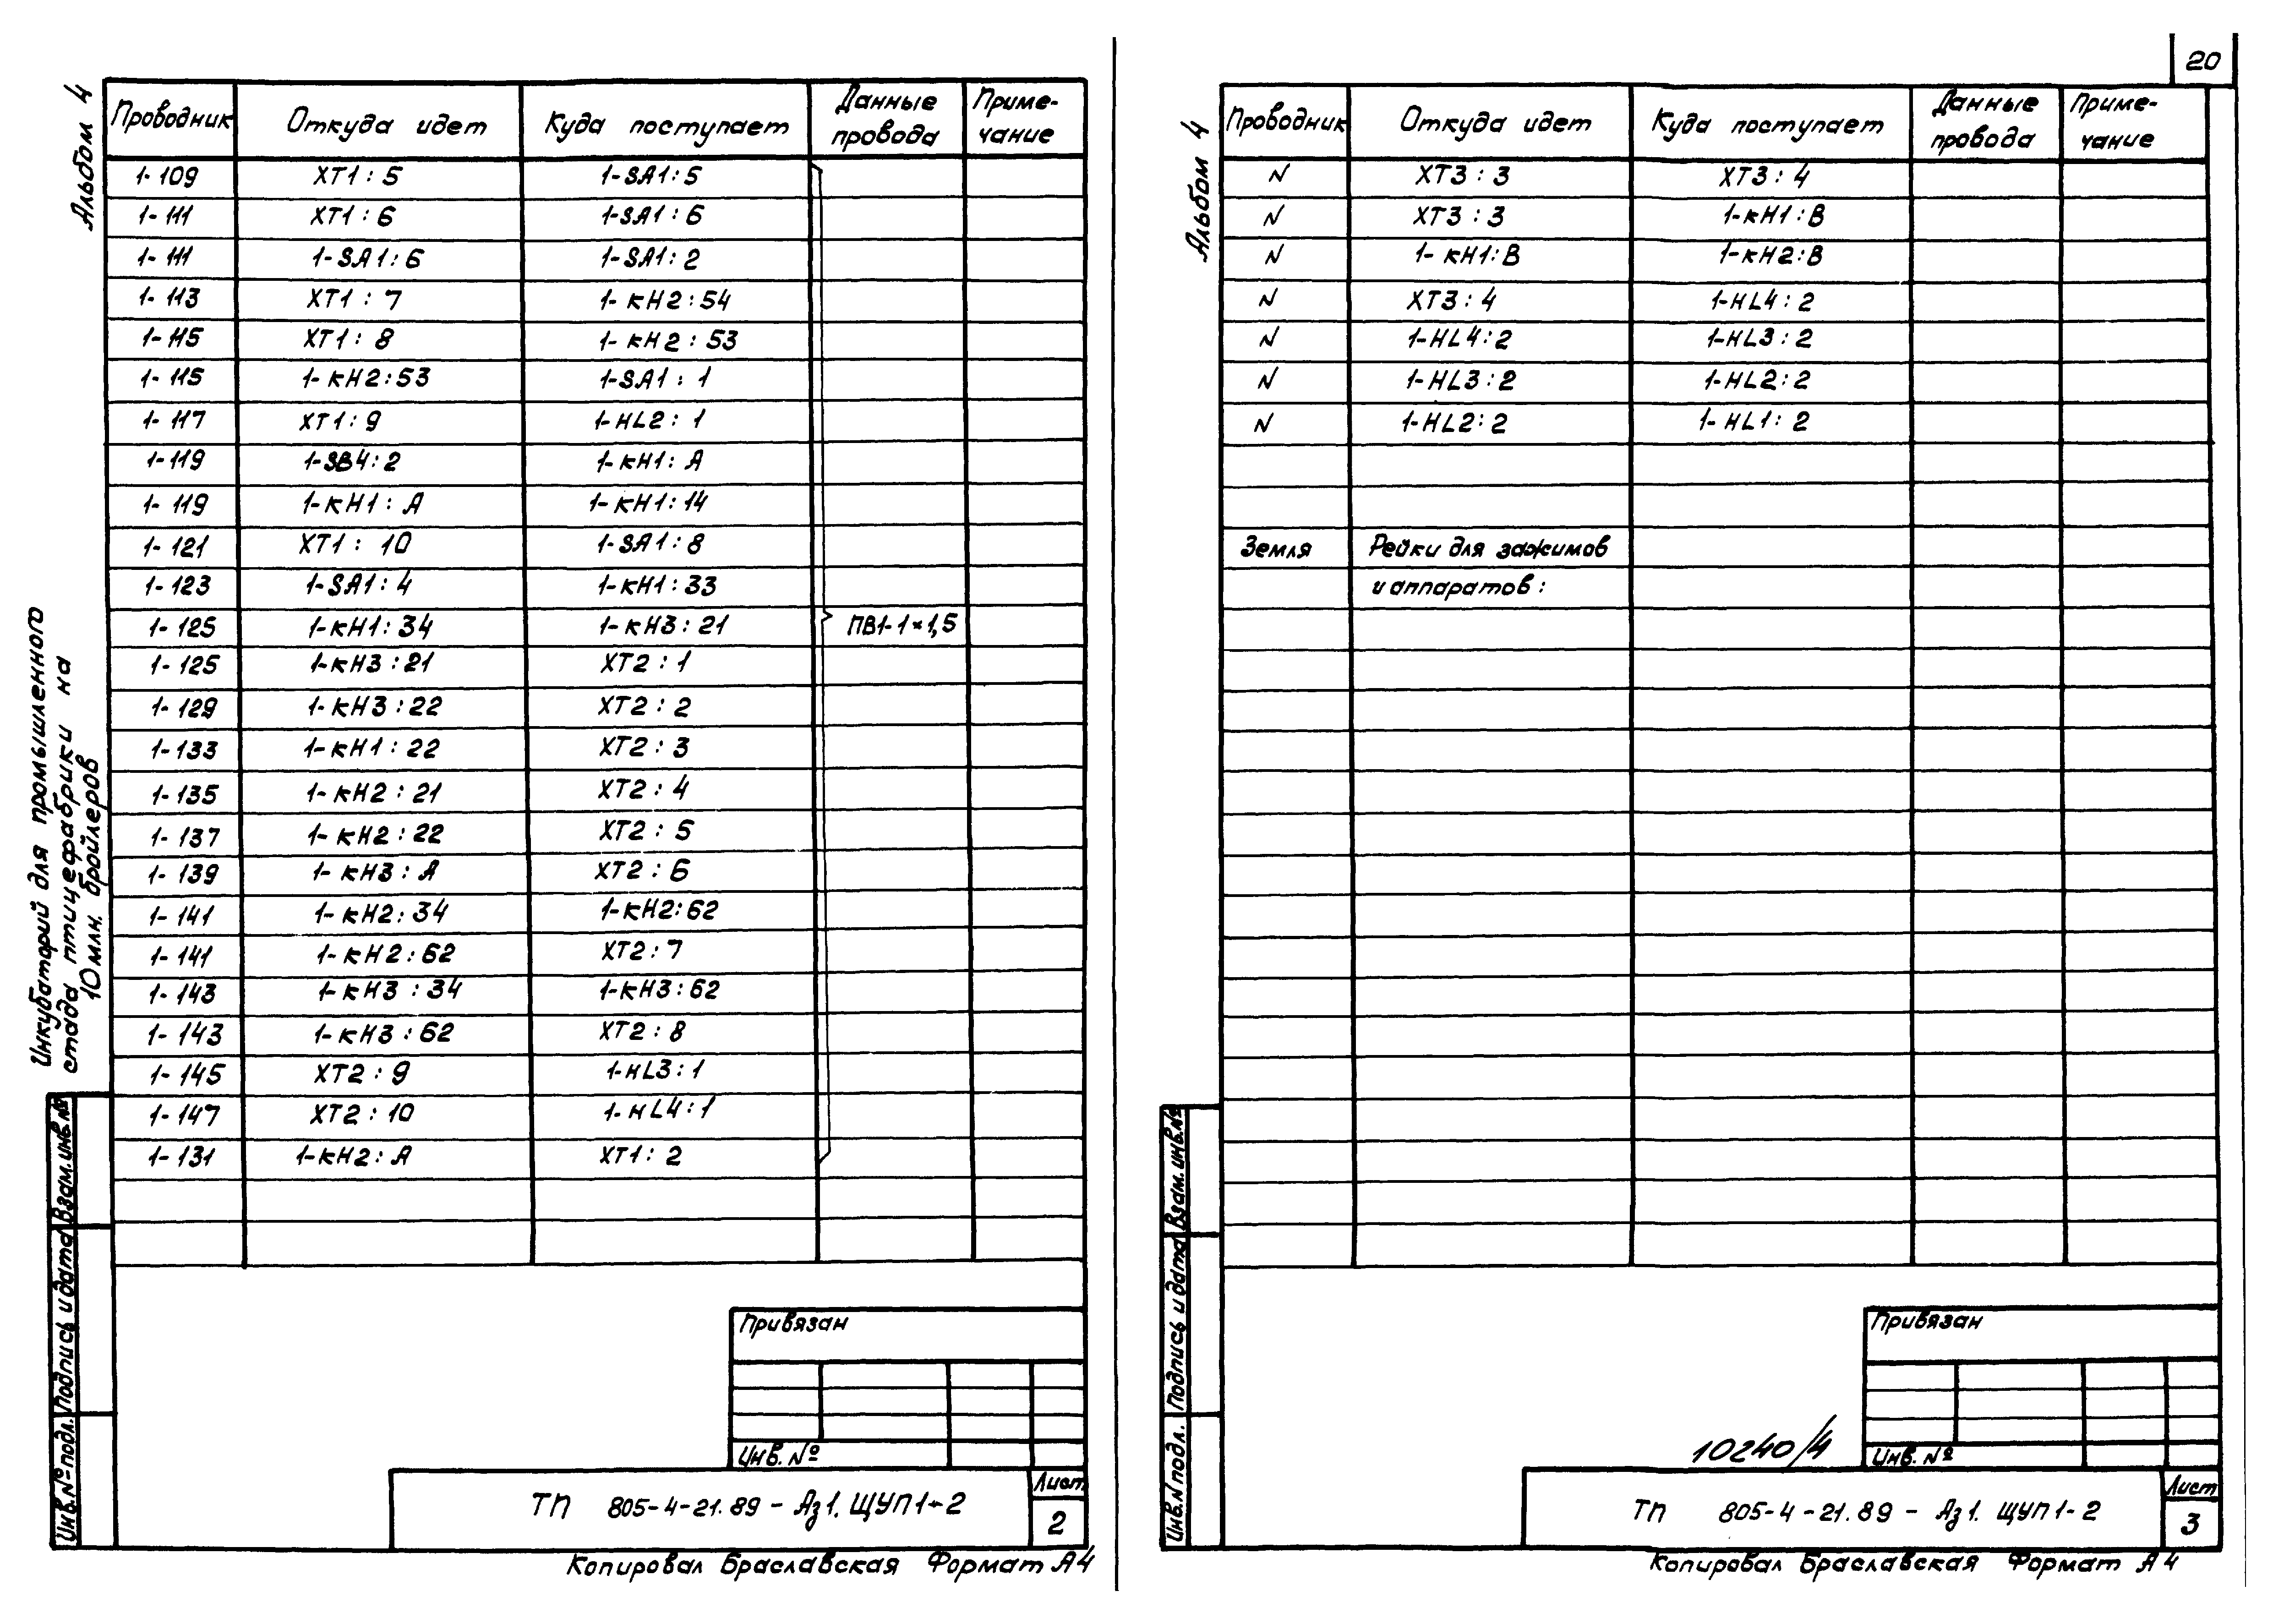 Альбом 4
Инкубаторий для промышленного
стада птицефабрики на
10 млн. бройлеров
Проводник Откуда идет Куда поступает Данные провода Приме-чание
1-109 XT1:5 1-SA1:5
1-111 XT1:6 1-SA1:6
1-111 1-SA1:6 1-SA1:2
1-113 XT1:7 1-КН2:54
1-115 XT1:8 1-КН2:53
1-115 1-КН2:53 1-SA1:1
1-117 XT1:9 1-HL2:1
1-119 1-SB4:2 1-КН1:А
1-119 1-КН1:А 1-КН1:14
1-121 XT1:10 1-SA1:8
1-123 1-SA1:4 1-КН1:33
1-125 1-КН1:34 1-КН3:21 ПВ1-1×1,5
1-125 1-КН3:21 XT2:1
1-129 1-КН3:22 XT2:2
1-133 1-КН1:22 XT2:3
1-135 1-КН2:21 XT2:4
1-137 1-КН2:22 XT2:5
1-139 1-КН3:А XT2:6
1-141 1-КН2:34 1-КН2:62
1-141 1-КН2:62 XT2:7
1-143 1-КН3:34 1-КН3:62
1-143 1-КН3:62 XT2:8
1-145 XT2:9 1-HL3:1
1-147 XT2:10 1-HL4:1
1-131 1-КН2:А XT1:2
Взам.инв.№
Подпись и дата
Инв.№ подл.
Привязан
Инв. №
ТП 805-4-21.89 - Аз1. ЩУП1-2
Лист
2
Копировал Браславская Формат А4
20
Альбом 4
Проводник Откуда идет Куда поступает Данные провода Приме-чание
N XT3:3 XT3:4
N XT3:3 1-КН1:В
N 1-КН1:В 1-КН2:В
N XT3:4 1-HL4:2
N 1-HL4:2 1-HL3:2
N 1-HL3:2 1-HL2:2
N 1-HL2:2 1-HL1:2
Земля Рейки для зажимов
и аппаратов:
Взам.инв.№
Подпись и дата
Инв.N подл.
Привязан
Инв. №
10240/4
ТП 805-4-21.89 - Аз1. ЩУП1-2
Лист
3
Копировал Браславская Формат А4